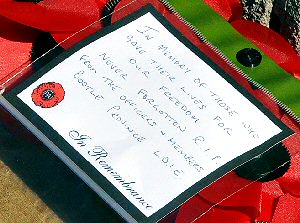 IN MEMORY OF THOSE WHO
GAVE THEIR LIVES FOR
OUR FREEDOM
NEVER FORGOTTEN R.I.P
FROM THE OFFICERS & MEMBERS
PROVINCE LOIC
In Remembrance